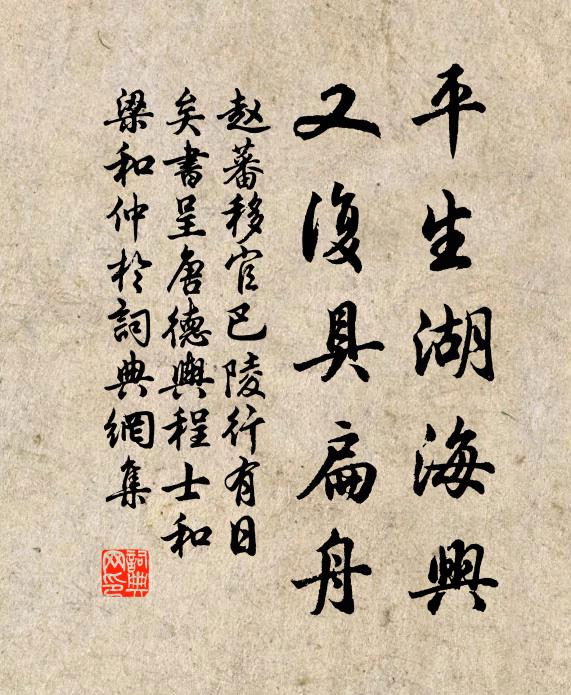 平生湖海興
又復具扁舟
赵蕃移官巴陵行有日
矣書呈唐德輿程士和
梁和仲於詞典網集
詞典
网印